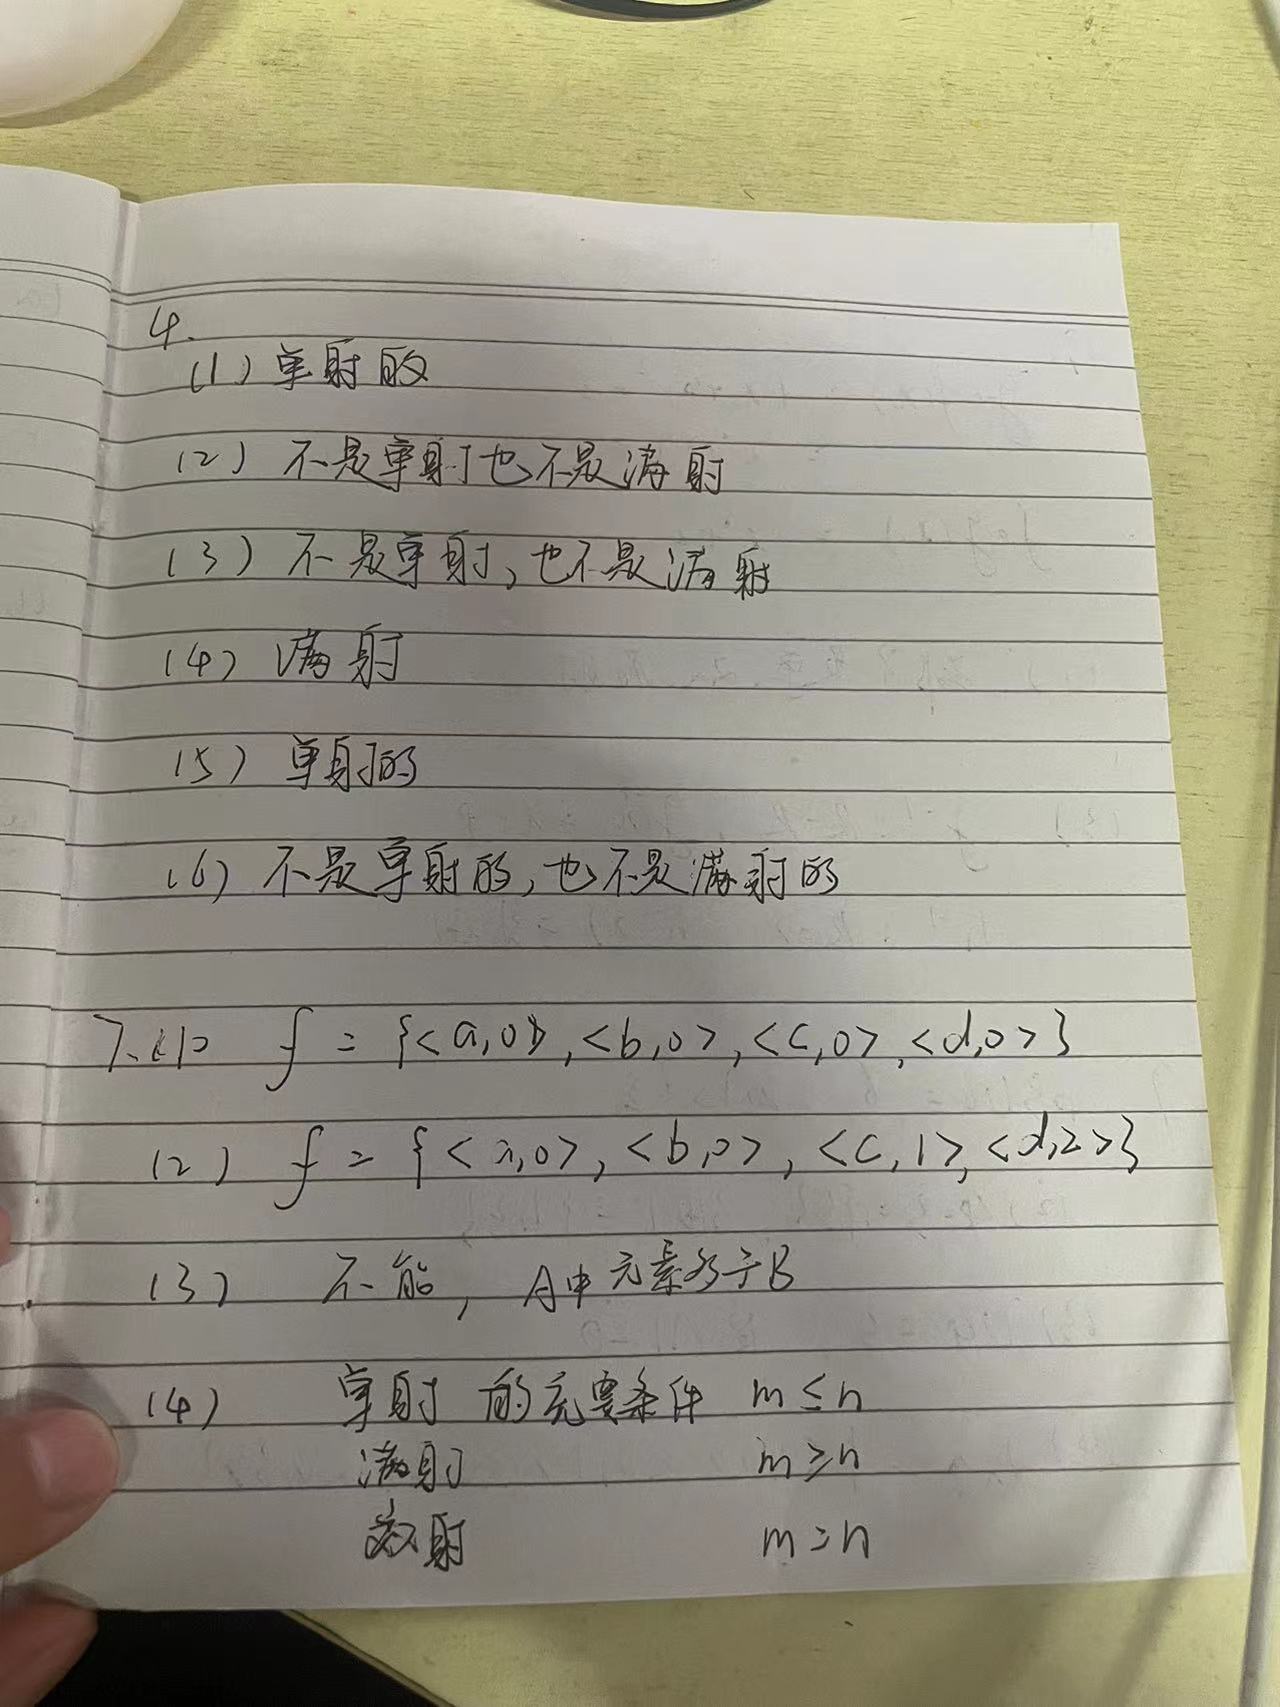 4.
(1) 单射的
(2) 不是单射也不是满射
(3) 不是单射,也不是满射
(4) 满射
(5) 单射的
(6) 不是单射的,也不是满射的
7.(1) f = {<a,0>,<b,0>,<c,0>,<d,0>}
(2) f = {<a,0>,<b,0>,<c,1>,<d,2>}
(3) 不能,A中元素多于B
(4) 单射 的充要条件 m≤n
满射 m≥n
双射 m=n